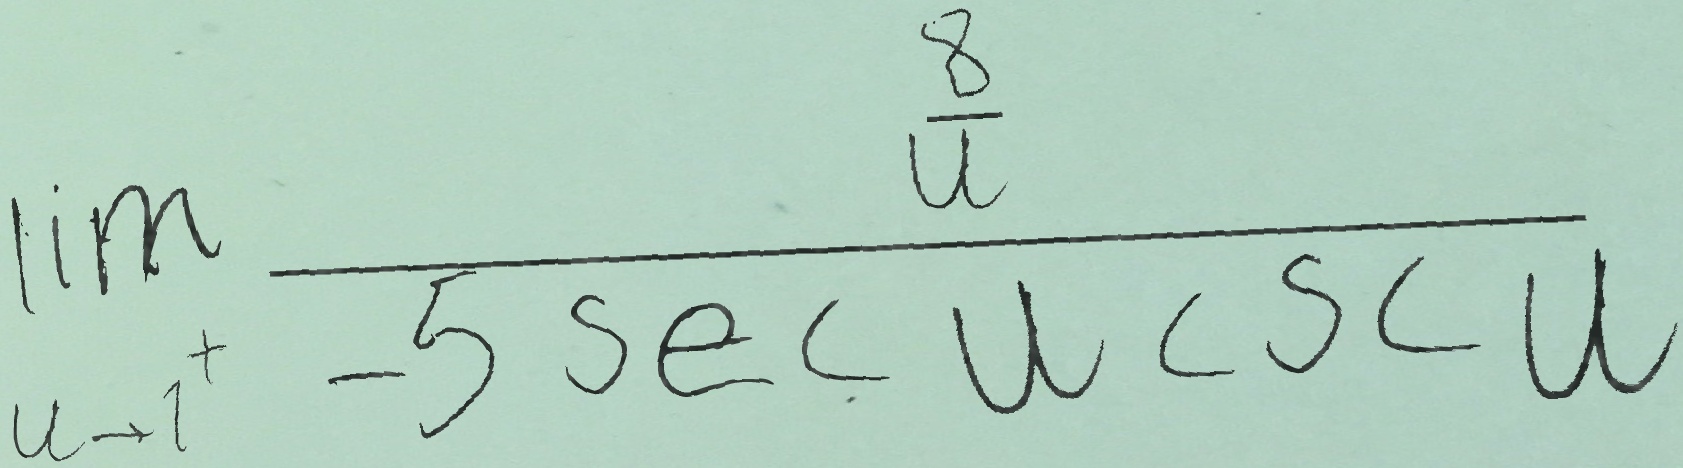 \lim_{u \to 1^+} \frac{\frac{8}{u}}{-5 \sec u \csc u}